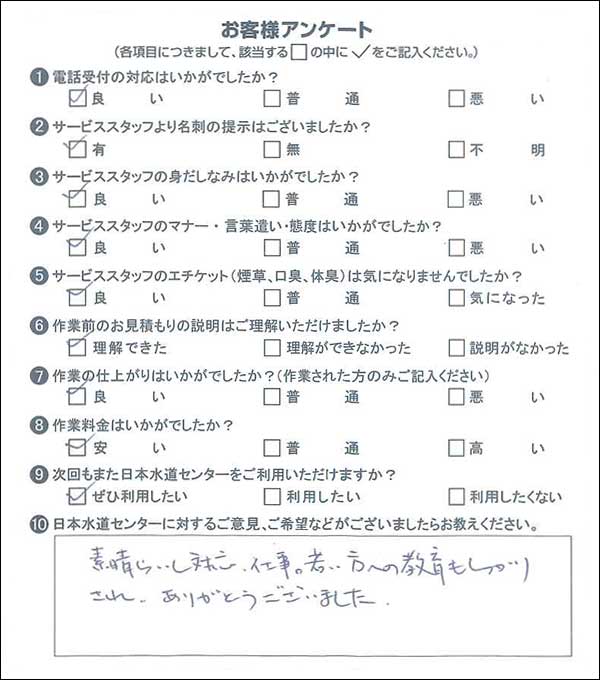 お客様アンケート
(各項目につきまして、該当する□の中に✓をご記入ください。)
❶ 電話受付の対応はいかがでしたか?
☑良い □普通 □悪い
❷ サービススタッフより名刺の提示はございましたか?
☑有 □無 □不明
❸ サービススタッフの身だしなみはいかがでしたか?
☑良い □普通 □悪い
❹ サービススタッフのマナー・言葉遣い・態度はいかがでしたか?
☑良い □普通 □悪い
❺ サービススタッフのエチケット(煙草、口臭、体臭)は気になりませんでしたか?
☑良い □普通 □気になった
❻ 作業前のお見積もりの説明はご理解いただけましたか?
☑理解できた □理解ができなかった □説明がなかった
❼ 作業の仕上がりはいかがでしたか?(作業された方のみご記入ください)
☑良い □普通 □悪い
❽ 作業料金はいかがでしたか?
☑安い □普通 □高い
❾ 次回もまた日本水道センターをご利用いただけますか?
☑ぜひ利用したい □利用したい □利用したくない
❿ 日本水道センターに対するご意見、ご希望などがございましたらお教えください。
素晴らいし対応、仕事。若い方への教育もしっかり
され、ありがとうございました。